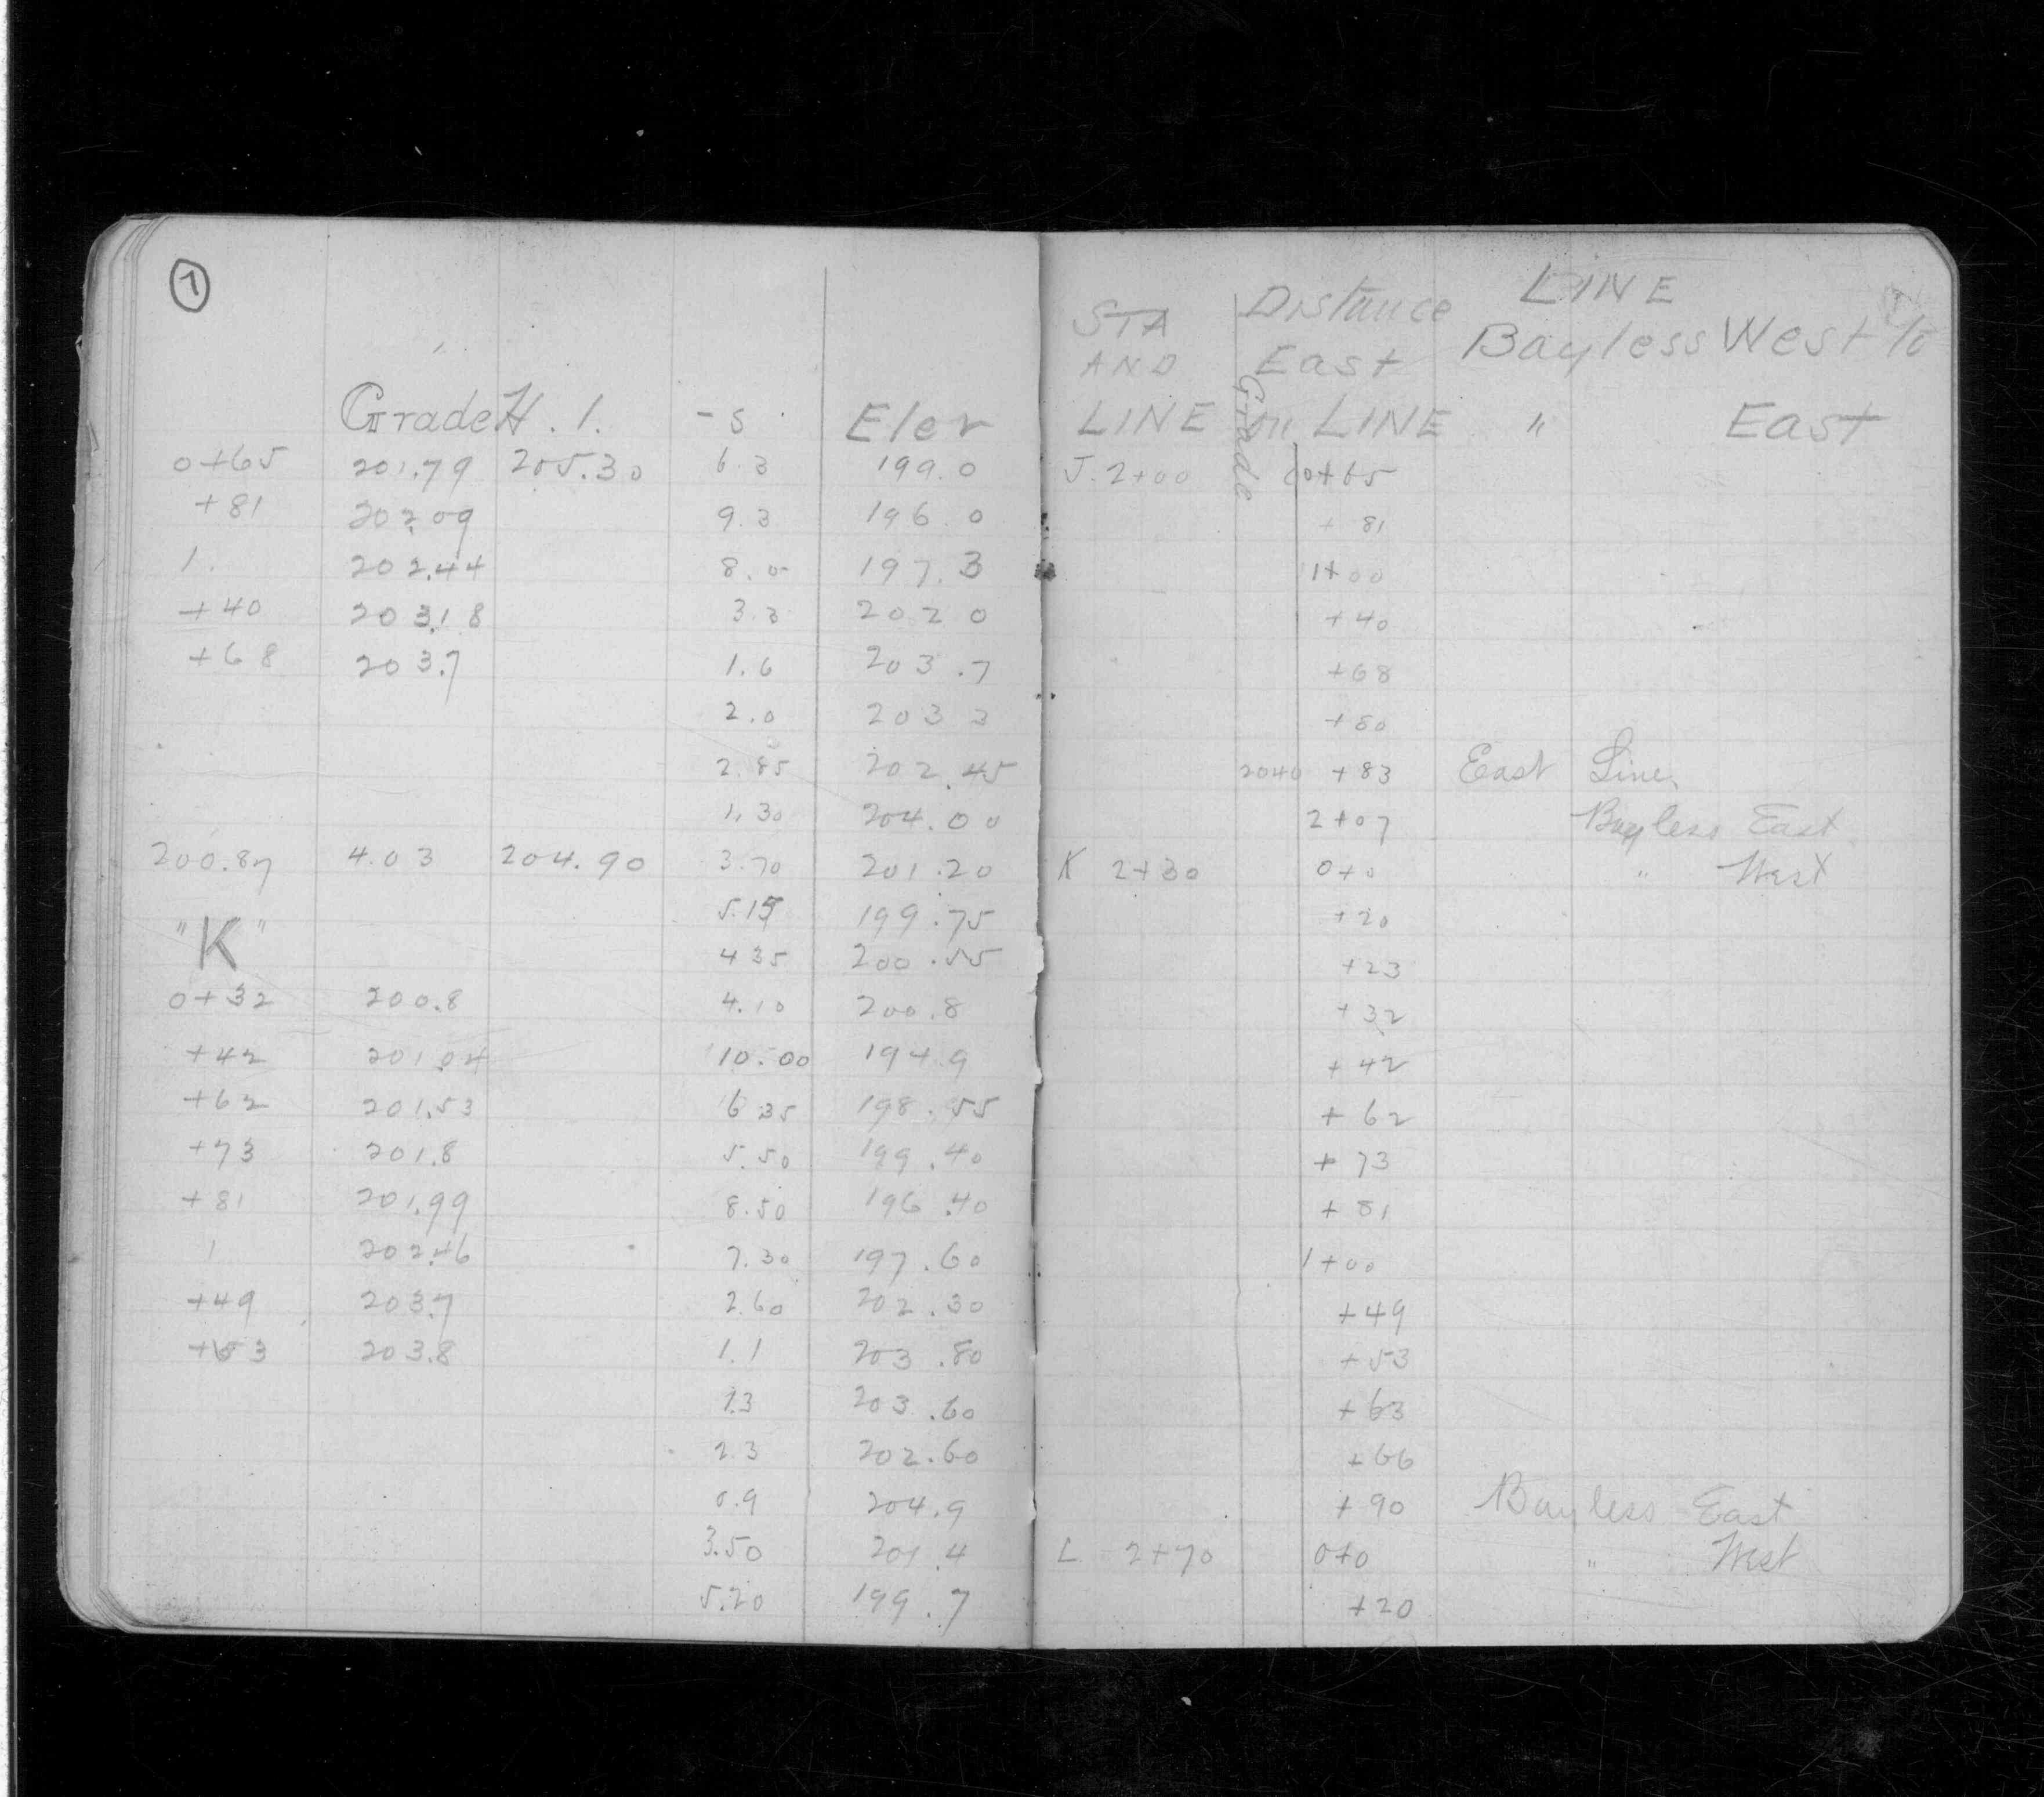 7
Grade H.I. -S Elev
0+65 201.79 205.30 6.3 199.0
+81 202.09 9.3 196.0
1. 202.44 8.0 197.3
+40 203.18 3.3 202 0
+68 203.7 1.6 203.7
2.0 203 3
2.85 202.45
1.30 204.00
200.87 4.03 204.90 3.70 201.20
5.15 199.75
"K"
4 35 200.55
0+32 200.8 4.10 200.8
+42 201.04 10.00 194.9
+62 201.53 6 35 198.55
+73 201.8 5.50 199.40
+81 201.99 8.50 196.40
1 202.46 7.30 197.60
+49 203.7 2.60 202.30
+53 203.8 1.1 203.80
1.3 203.60
2.3 202.60
0.9 204.9
3.50 201.4
5.20 199.7
LINE
STA Distance Bayless West to
AND East
LINE on LINE " East
Grade
J. 2+00 0+65
+ 81
1+00
+40
+68
+80
2040 +83 East Line
2+07 Bayless East
K 2+30 0+0 " West
+20
+23
+32
+42
+62
+73
+81
1+00
+49
+53
+63
+66
+90 Bayless East
L 2+70 0+0 " West
+20